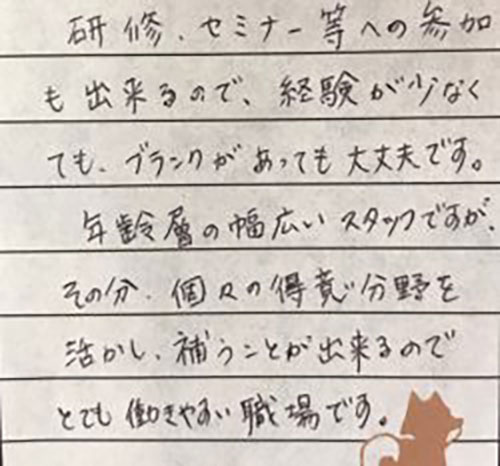 研修、セミナー等への参加
も出来るので、経験が少なく
ても、ブランクがあっても大丈夫です。
年齢層の幅広いスタッフですが、
その分、個々の得意分野を
活かし、補うことが出来るので
とても働きやすい職場です。